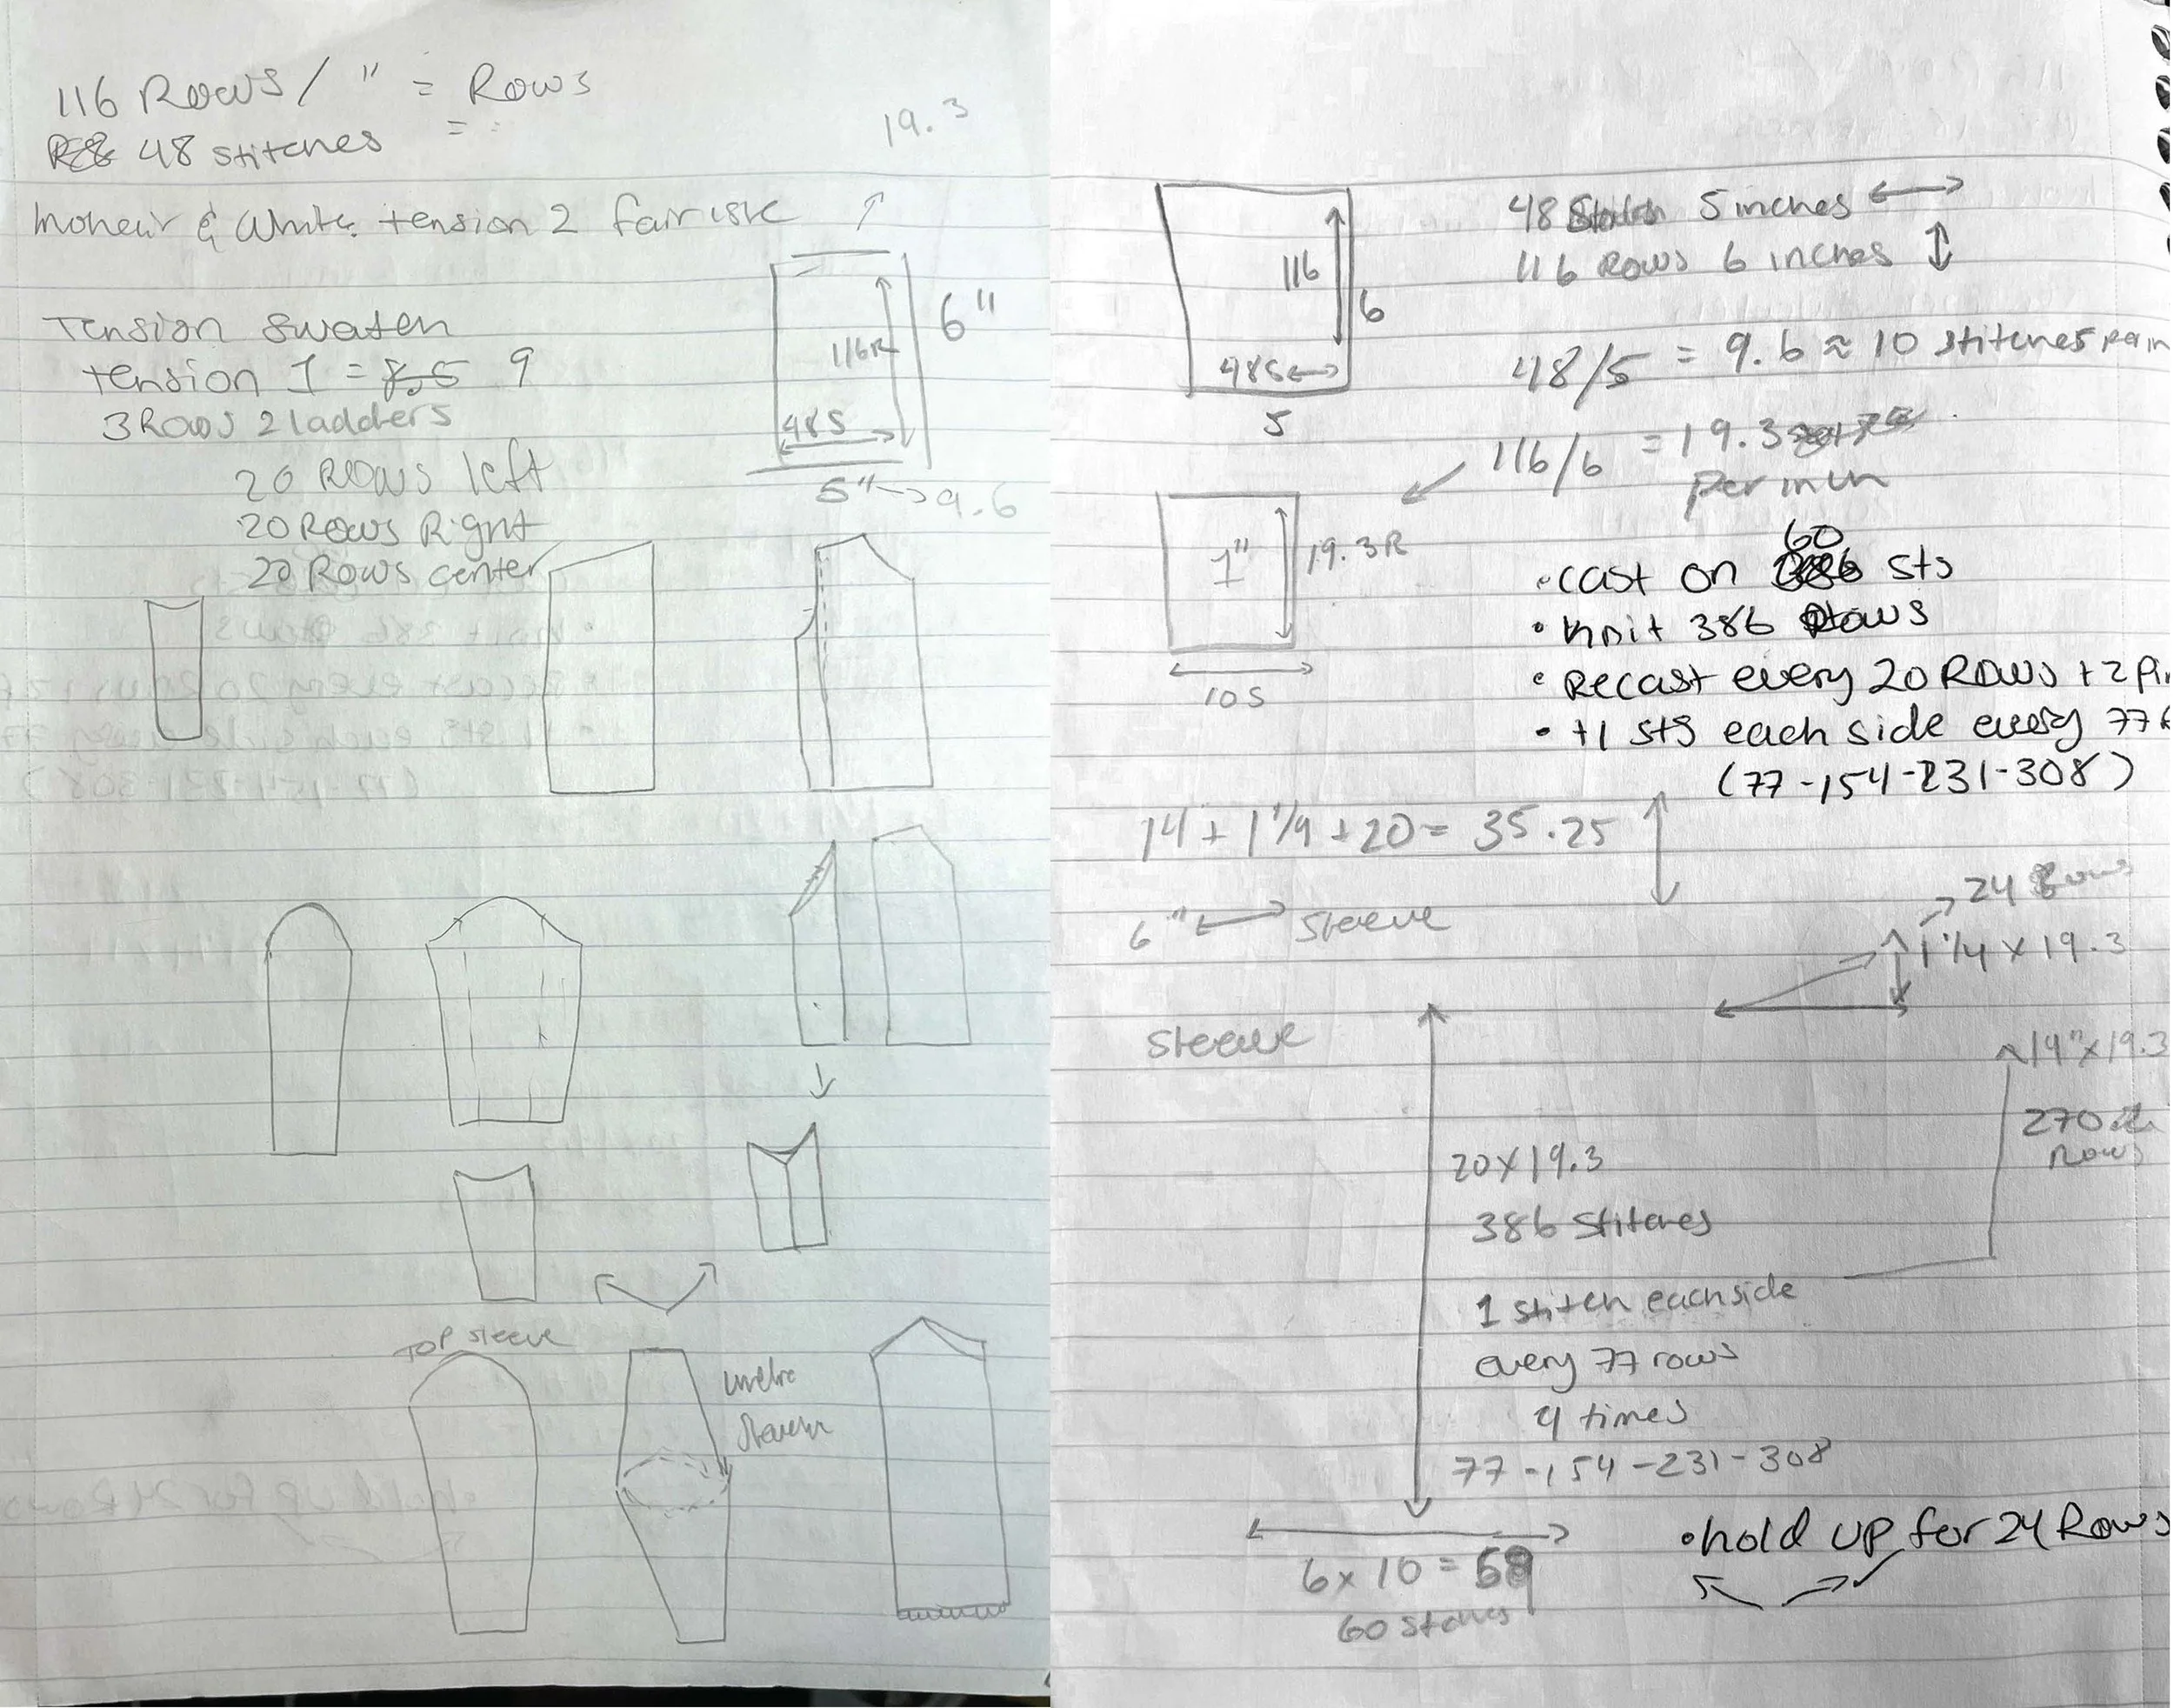 116 Rows / " = Rows
48 stitches =
19.3
Moheair & White tension 2 fairisle
Tension Swatch
tension 1 = 8.5 9
3 Rows 2 ladders
20 Rows left
20 Rows Right
20 Rows center
6"
116R
48S
5" → 9.6
TOP sleeve
116
6
48S
5
48 5 inches
116 Rows 6 inches
48/5 = 9.6 ≈ 10 stitches per in
116/6 = 19.3
per inch
1"
19.3R
10S
60
• cast on sts
• Knit 386 Rows
• Recast every 20 Rows + 2
• +1 sts each side every 77
(77-154-231-308)
14 + 1 1/4 + 20 = 35.25
6" sleeve
24 Rows
1 1/4 x 19.3
Sleeve
14" x 19.3
270
Rows
20 x 19.3
386 stitches
1 stitch each side
every 77 rows
4 times
77-154-231-308
• hold up for 24 Rows
6 x 10 =
60